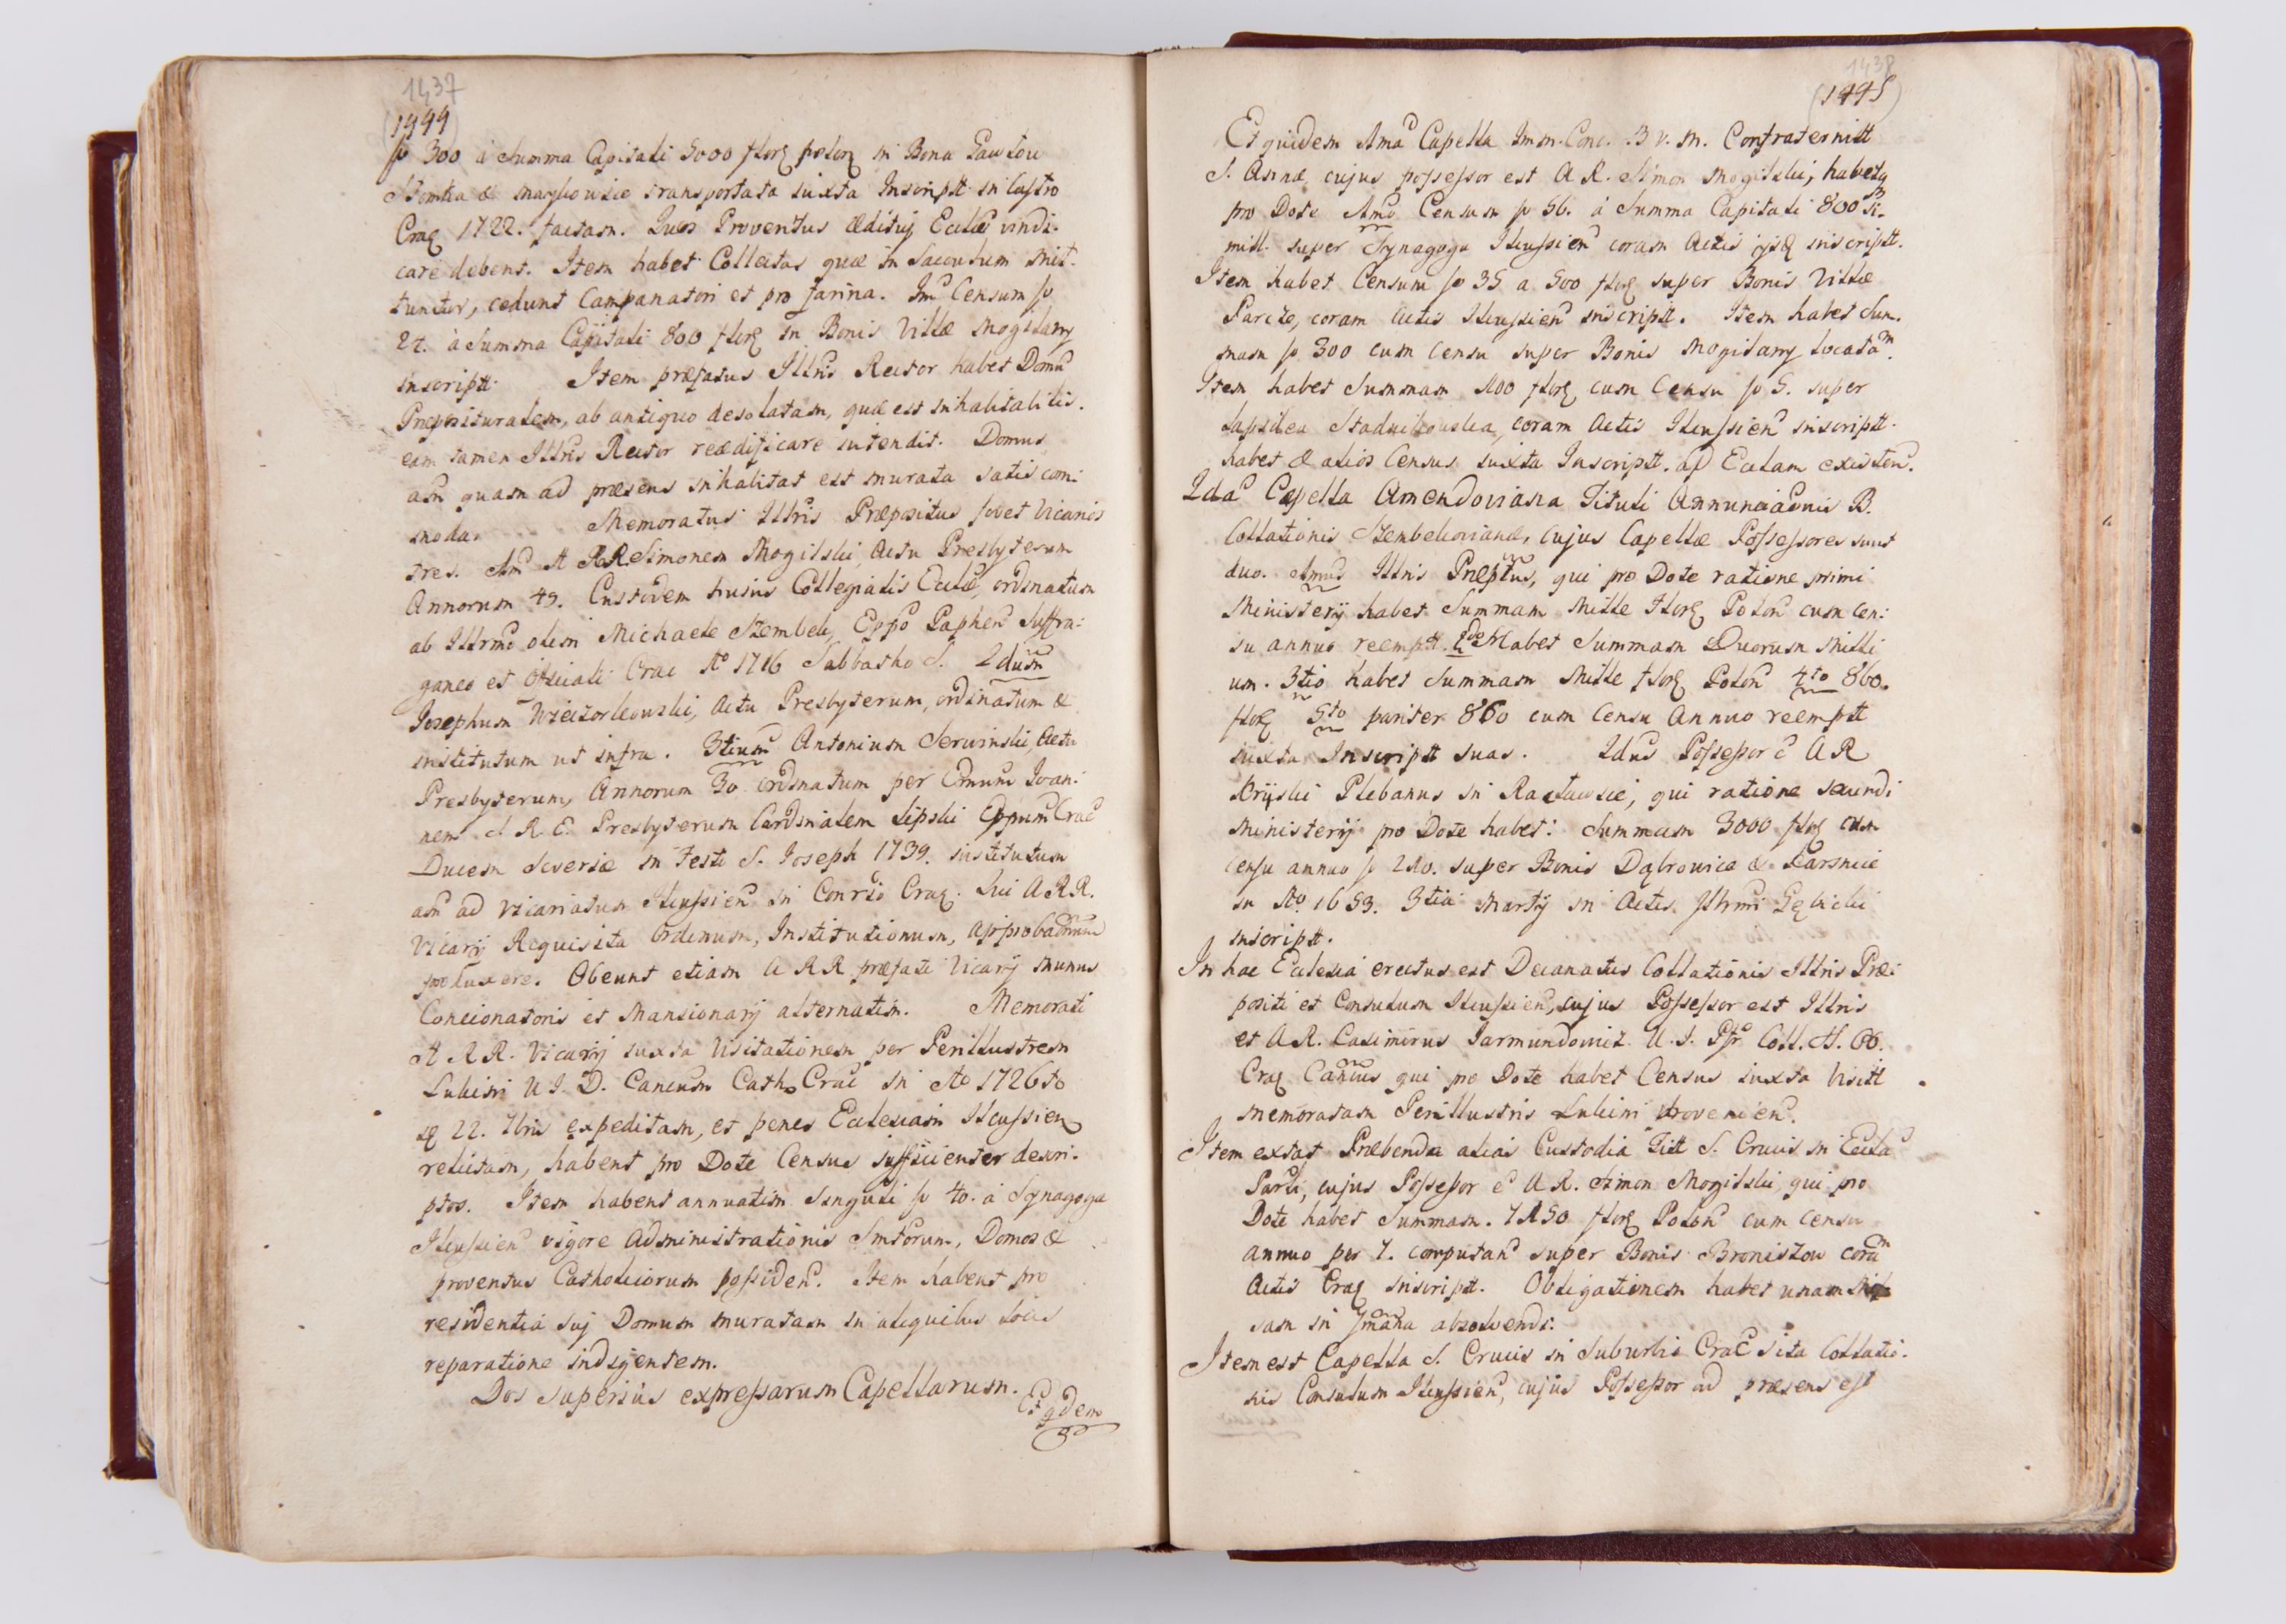 1437
(1444)
fl 300 à Summa Capitali 5000 flor polon in Bona Gawlow
Słomka & Marszowice transportata iuxta Inscriptt in Castro
Crac 1722. factam. Quos Proventus Æditui Ecclæ vindi-
care debent. Item habet Collectas quæ in Sacculum mit-
tuntur, cedunt Campanatori et pro farina. Imo Censum fl
27. à Summa Capitali 800 flor in Bonis Villæ Mogilany
inscriptt. Item præfatus Illtris Rector habet Domum
Præposituralem, ab antiquo desolatam, quæ est inhabitabilis.
eam tamen Illtris Rector reædificare intendit. Domus
atm quam ad præsens inhabitat est murata satis com-
moda. Memoratus Illtris Præpositus fovet Vicarios
tres. Imo A RR. Simonem Mogilski, Actu Presbyterum
Annorum 49. Custodem huius Collegiatis Ecclæ, ordinatum
ab Illrmo olim Michaele Szembek, Eppo Paphen Suffra-
ganeo et Officiali Crac Ao 1716 Sabbatho S. 2dum
Josephum Wieczorkowski, Actu Presbyterum, ordinatum &
institutum ut infra. 3tium Antonium Serwinski, Actu
Presbyterum, Annorum 30 ordinatum per Emum Joan-
nem S. R. E. Presbyterum Cardinalem Lipski Eppum Crac
Ducem Severiæ in Festi S. Joseph 1739. institutum
atm ad Vicariatum Ilcussien in Conrio Crac. Qui A RR.
Vicarij Requisita Ordinum, Institutionum, approbaonum
produxere. Obeunt etiam A RR præfati Vicarij munus
Concionatoris et Mansionarij alternatim. Memorati
A RR. Vicarij iuxta Visitationem per Perillustrem
Lubini U J. D. Cancum Cath Crac in Ao 1726to
22. 7bris expeditam, et penes Ecclesiam Ilcussien
relictam, habent pro Dote Census sufficienter descri-
ptos. Item habent annuatim Singuli fl 40. à Synagoga
Ilcussien vigore Administrationis Smtorum, Domos &
proventus Catholicorum possiden. Item habent pro
residentia sui Domum muratam in aliquibus locis
reparatione indigentem.
Dos superius expressarum Capellarum.
Et qdem
1438
(1445)
Et quidem Ima Capella Imm. Conc. B V. M. Confraternitt
S. Annæ cujus possessor est A R. Simon Mogilski, habetq
pro Dote Imo Censum fl 56. à Summa Capitali 800 Si-
mill. super Synagoga Ilcussien coram Actis ijsd inscriptt.
Item habet Censum fl 35 a 500 flor super Bonis Villæ
Parcze, coram Actis Ilcussien inscriptt. Item habet Sum-
mam fl 300 cum Censu super Bonis Mogilany locatam.
Item habet Summam 100 flor cum Censu fl 5. super
Lapidea Stadnikowska, coram Actis Ilcussien inscriptt.
habet & alios Census iuxta Inscriptt. ap Ecclam existen.
2da Capella Amendoviana Tituli Annunciaonis B.
Collationis Szembekovianæ, cujus Capellæ Possessores sunt
duo. Imus Illtris Præptus, qui pro Dote ratione primi
Ministerij habet Summam Mille Flor Polon cum Cen-
su annuo reemptt. 2do Habet Summam Duorum Milli
um. 3tio habet Summam Mille flor Polon 4to 860.
flor 5to pariter 860 cum Censu Annuo reemptt
iuxta Inscriptt suas. 2dus Possessor e A R
Kryski Plebanus in Racławice, qui ratione secundi
Ministerij pro Dote habet: Summam 3000 flor cum
censu annuo fl 210. super Bonis Dąbrowica & Karsnice
in Ao 1653. 3tia Martij in Actis Illrmi Gębicki
inscriptt.
In hac Ecclesia erectus est Decanatus Collationis Illtris Præ-
positi et Consulum Ilcussien, cujus Possessor est Illtris
et A R. Casimirus Jarmundowicz U. J. Psr Coll. S. OO.
Crac Canus qui pro Dote habet Census iuxta Visitt
memoratam Perillustris Lubini provenien.
Item extat Præbenda alias Custodia Titt S. Crucis in Eccla
Parli, cujus Possessor e A R. Simon Mogilski, qui pro
Dote habet Summam. 7150 flor Polon cum censu
annuo per 7. computan super Bonis Broniszow coram
Actis Crac inscriptt. Obligationem habet unam Mis-
sam in Smana absolvendi.
Item est Capella S. Crucis in Suburbio Crac sita Collatio-
nis Consulum Ilcussien, cujus Possessor ad præsens est